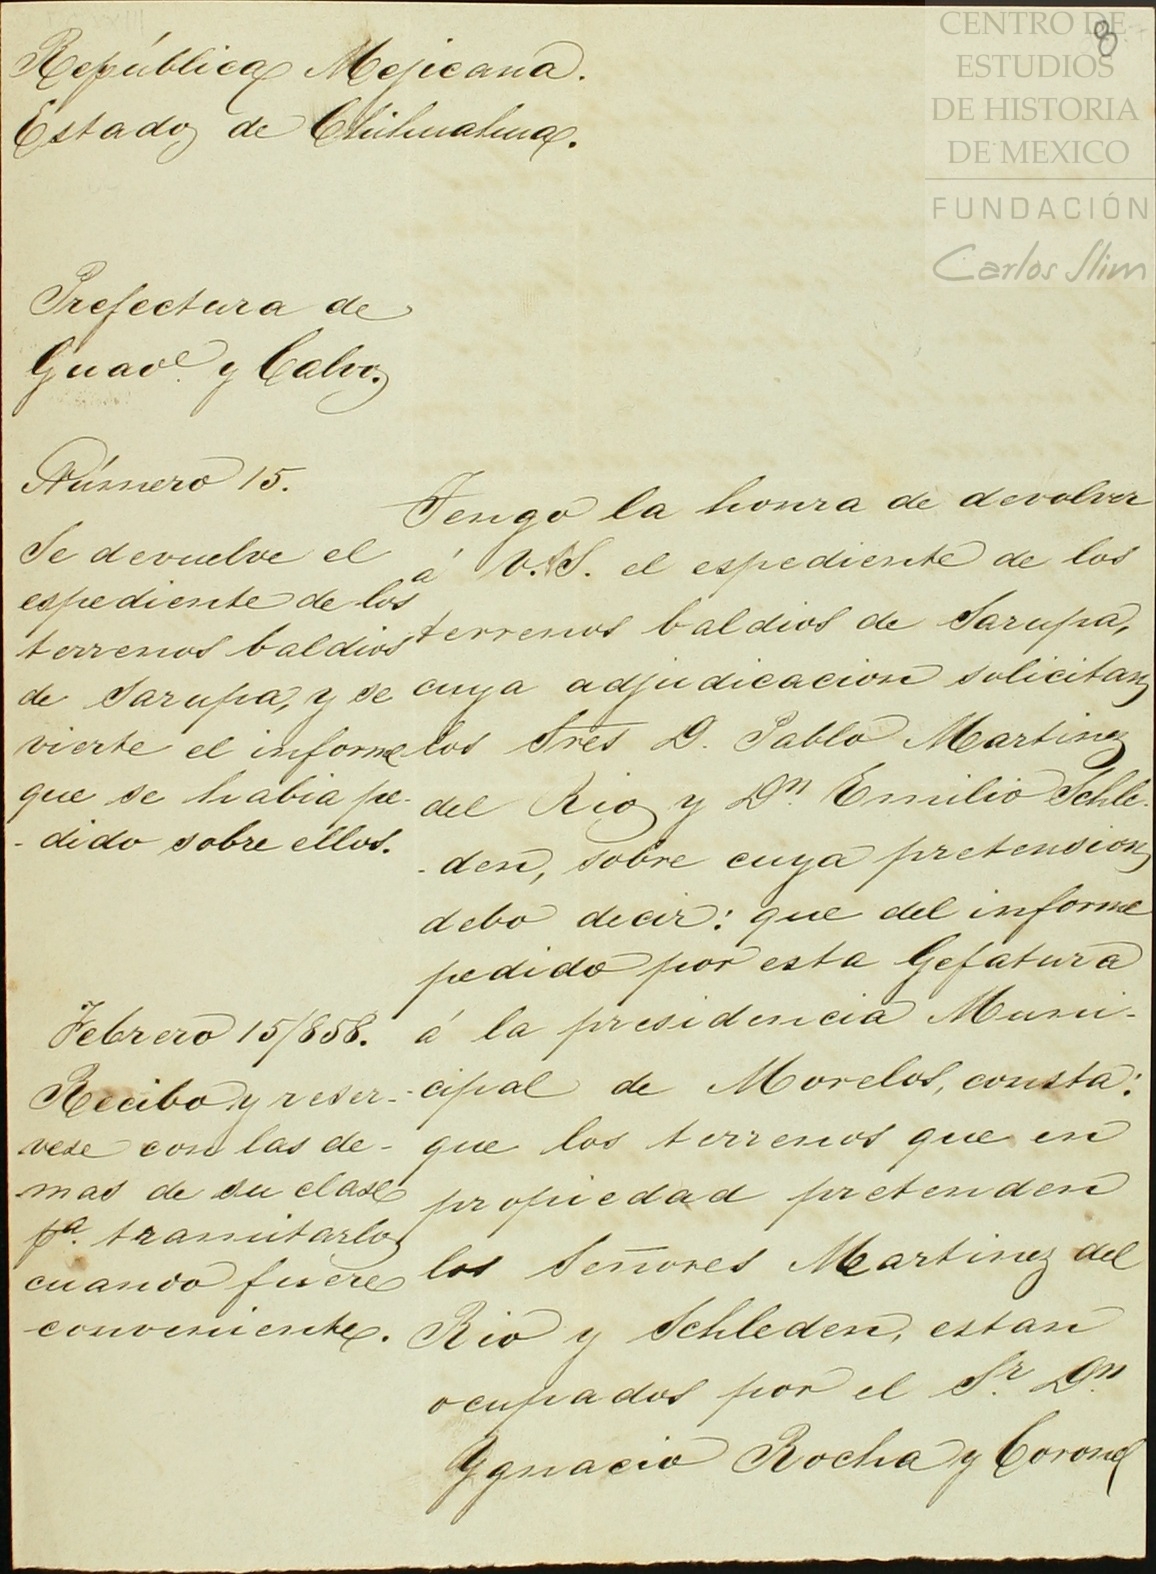 8
CENTRO DE
ESTUDIOS
DE HISTORIA
DE MEXICO
FUNDACIÓN
Carlos Slim
República Mejicana.
Estado de Chihuahua.
Prefectura de
Guade. y Calvo.
Número 15.
Se devuelve el
espediente de los
terrenos baldios
de Sarupa, y se
vierte el informe
que se habia pe-
-dido sobre ellos.
Febrero 15/858.
Recibo y reser-
vese con las de-
mas de su clase
pa. tramitarlo
cuando fuere
conveniente.
Tengo la honra de devolver
á V.S. el espediente de los
terrenos baldios de Sarupa,
cuya adjudicacion solicitan
los Sres D. Pablo Martinez
del Rio y Dn. Emilio Schle-
-den, sobre cuya pretension
debo decir: que del informe
pedido por esta Gefatura
á la presidencia Muni-
-cipal de Morelos, consta:
que los terrenos que en
propiedad pretenden
los Señores Martinez del
Rio y Schleden, estan
ocupados por el Sr. Dn.
Ygnacio Rocha y Coronel